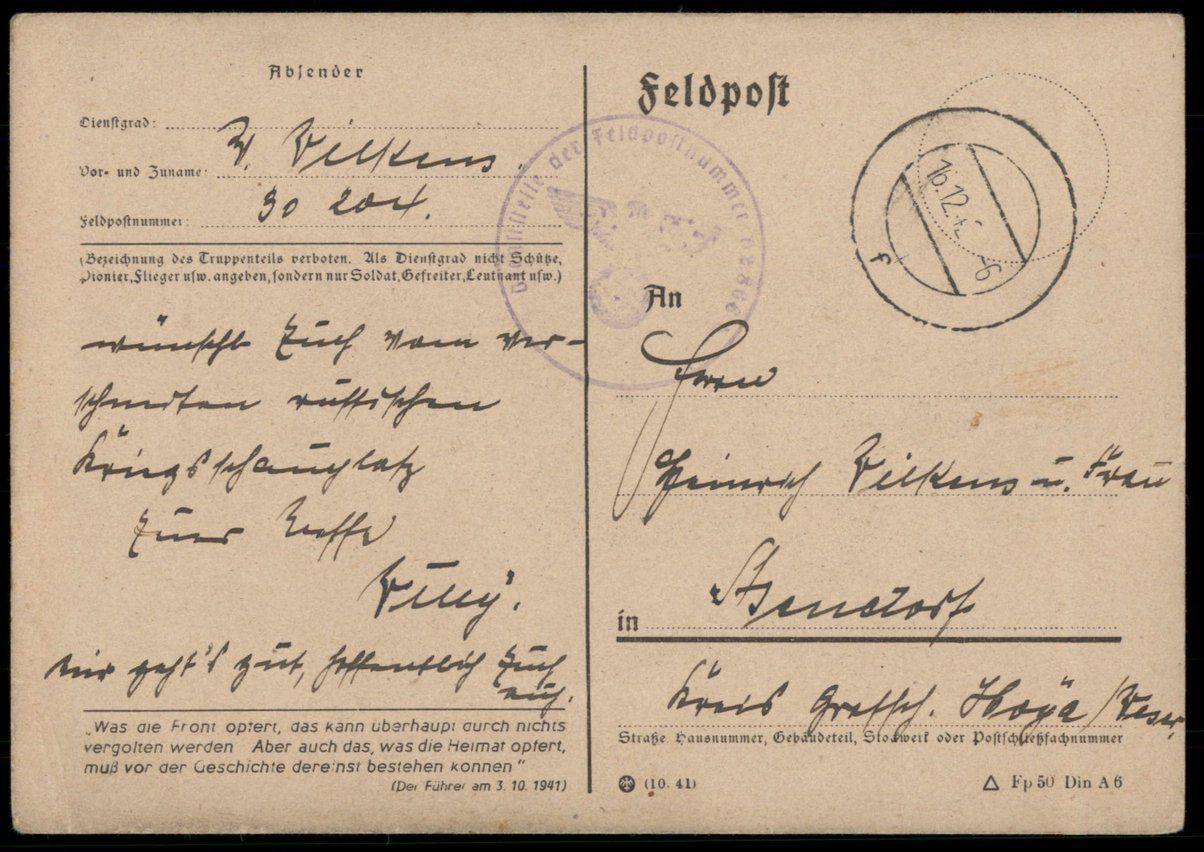 Absender
Dienstgrad:
W. Wilkens.
Vor- und Zuname:
30 204.
Feldpostnummer:
(Bezeichnung des Truppenteils verboten. Als Dienstgrad nicht Schütze,
Pionier, Flieger usw. angeben, sondern nur Soldat, Gefreiter, Leutnant usw.)
wünscht Euch vom ver-
schneiten russischen
Kriegsschauplatz
Euer Neffe
Willy.
Mir geht's gut, hoffentlich Euch
auch.
„Was die Front opfert, das kann überhaupt durch nichts
vergolten werden Aber auch das, was die Heimat opfert,
muß vor der Geschichte dereinst bestehen können"
(Der Führer am 3. 10. 1941)
Feldpost
der Feldpostnummer
16.12.42
f
An
Herrn
Heinrich Wilkens u. Frau
in
Stendorf
Kreis Grafsch. Hoya/Weser
Straße, Hausnummer, Gebäudeteil, Stockwerk oder Postschließfachnummer
(10. 41)
Fp 50 Din A 6